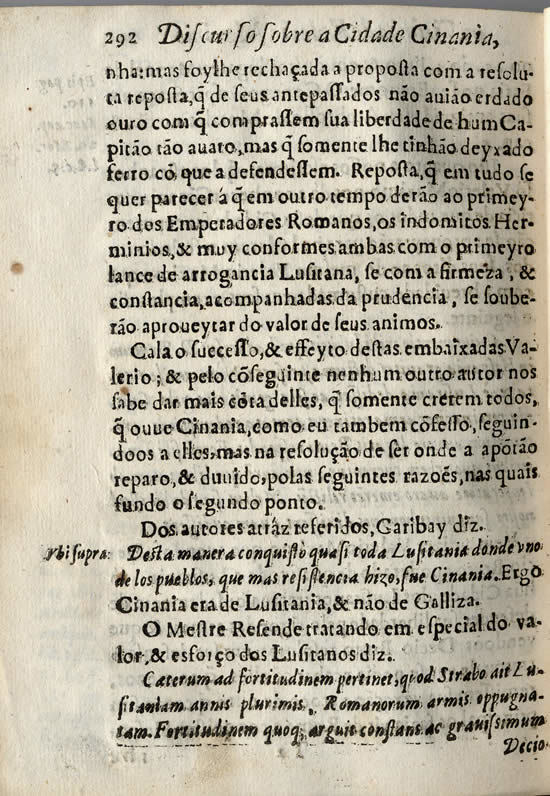 292 Discurso sobre a Cidade Cinania,
nha: mas foylhe rechaçada a proposta com a resolu-
ta reposta, q̃ de seus antepassados não auião erdado
ouro com q̃ comprassem sua liberdade de hum Ca-
pitão tão auaro, mas q̃ somente lhe tinhão deyxado
ferro cõ que a defendessem. Reposta, q̃ em tudo se
quer parecer á q̃ em outro tempo derão ao primey-
ro dos Emperadores Romanos, os indomitos Her-
minios, & muy conformes ambas com o primeyro
lance de arrogancia Lusitana, se com a firmeza, &
constancia, acompanhadas da prudencia, se soube-
rão aproueytar do valor de seus animos.
Cala o successo, & effeyto destas embaixadas Va-
lerio; & pelo cõseguinte nenhum outro autor nos
sabe dar mais cõta delles, q̃ somente crerem todos,
q̃ ouue Cinania, como eu tambem cõfesso, seguin-
doos a elles, mas na resolução de ser onde a apõtão
reparo, & duuido, polas seguintes razoẽs, nas quais
fundo o segundo ponto.
Dos autores atràz referidos, Garibay diz.
Vbi supra: Desta manera conquistò quasi toda Lusitania donde vno
de los pueblos, que mas resistencia hizo, fue Cinania. Ergo
Cinania era de Lusitania, & não de Galliza.
O Mestre Resende tratando em especial do va-
lor, & esforço dos Lusitanos diz.
Cæterum ad fortitudinem pertinet, quod Strabo ait Lu-
sitaniam annis plurimis, Romanorum armis oppugna-
tam. Fortitudinem quoq; arguit constans ac grauissimum
Decio